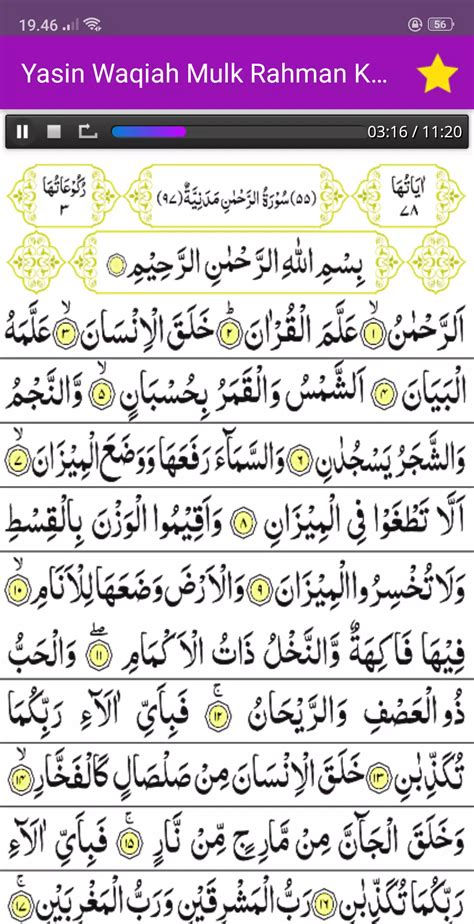 19.46 56
Yasin Waqiah Mulk Rahman K...
03:16 / 11:20
اٰيَاتُهَا ٧٨ (٥٥) سُوْرَةُ الرَّحْمٰنِ مَدَنِيَّةٌ (٩٧) رُكُوْعَاتُهَا ٣
بِسْمِ اللّٰهِ الرَّحْمٰنِ الرَّحِيْمِ
اَلرَّحْمٰنُۙ ١ عَلَّمَ الْقُرْاٰنَؕ ٢ خَلَقَ الْاِنْسَانَۙ ٣ عَلَّمَهُ
الْبَيَانَ ٤ اَلشَّمْسُ وَالْقَمَرُ بِحُسْبَانٍۙ ٥ وَّالنَّجْمُ
وَالشَّجَرُ يَسْجُدٰنِ ٦ وَالسَّمَآءَ رَفَعَهَا وَوَضَعَ الْمِيْزَانَۙ ٧
اَلَّا تَطْغَوْا فِى الْمِيْزَانِ ٨ وَاَقِيْمُوا الْوَزْنَ بِالْقِسْطِ
وَلَا تُخْسِرُوا الْمِيْزَانَ ٩ وَالْاَرْضَ وَضَعَهَا لِلْاَنَامِۙ ١٠
فِيْهَا فَاكِهَةٌ وَّالنَّخْلُ ذَاتُ الْاَكْمَامِۖ ١١ وَالْحَبُّ
ذُو الْعَصْفِ وَالرَّيْحَانُۚ ١٢ فَبِاَيِّ اٰلَاۤءِ رَبِّكُمَا
تُكَذِّبٰنِ ١٣ خَلَقَ الْاِنْسَانَ مِنْ صَلْصَالٍ كَالْفَخَّارِۙ ١٤
وَخَلَقَ الْجَاۤنَّ مِنْ مَّارِجٍ مِّنْ نَّارٍۚ ١٥ فَبِاَيِّ اٰلَاۤءِ
رَبِّكُمَا تُكَذِّبٰنِ ١٦ رَبُّ الْمَشْرِقَيْنِ وَرَبُّ الْمَغْرِبَيْنِۚ ١٧